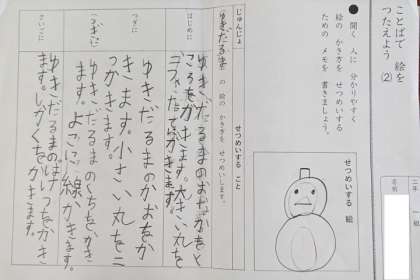 ことばで 絵を
つたえよう ②
二年 一組
名前
● 聞く 人に 分かりやすく
絵の かき方を せつめいする
ための メモを 書きましょう。
せつめいする 絵
じゅんじょ
せつめいする こと
ゆきだるま の 絵の かき方を せつめいします。
はじめに
ゆきだるまのおだかおと
ころをかきます。大きい丸を
二つたてにかきます。
つぎに
ゆきだるまのかおをか
きます。小さい丸を二
つかきます。
つぎに
ゆきだるまのくちを、かき
ます。よこに線かきます。
さいごに
ゆきだるまのぼ
けつをかき
ます。しかくをかきます。